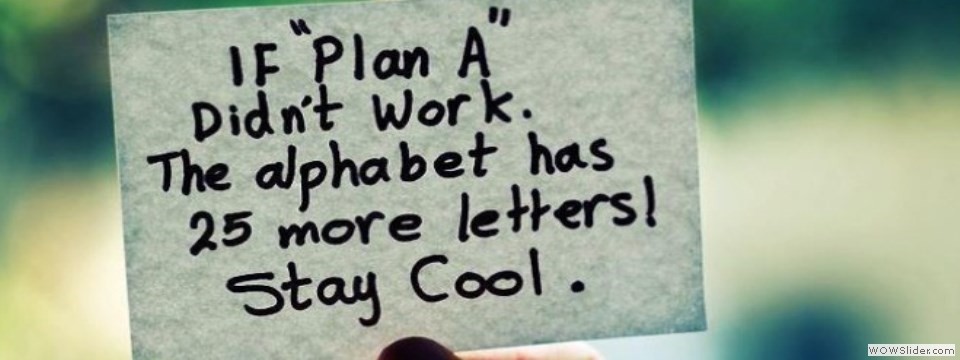 IF "Plan A"
Didn't Work.
The alphabet has
25 more letters!
Stay Cool.
WOWSlider.com